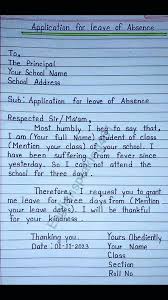 Application for leave of Absence
To,
The Principal
Your School Name
School Address
Sub: Application for leave of Absence
Respected Sir/Ma'am,
Most humbly I beg to say that,
I am (Your full Name) student of class
(Mention your class) of your school. I
have been suffering from fever since
yesterday. So I can not attend the
school for three days.
Therefore, I request you to grant
me leave for three days from (Mention
your leave dates). I will be thankful
for your kindness.
Thanking you. Yours Obediently
Date: 01-11-2023 Your Name
Class
Section
Roll No.